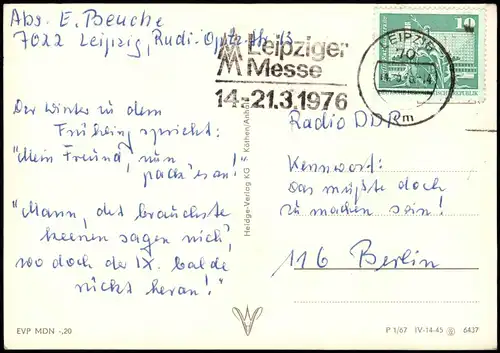 Abs. E. Beuche
7022 Leipzig, Rudi-Opitz-Str. 13
Leipziger
Messe
14.-21.3.1976
LEIPZIG
70
m
10
Der Winter zu dem
Frühling spricht:
"Mein Freund, nun
pack's an!"
"Mann, det brauchste
keenen sagen nich,
wo doch der IX. balde
rückt heran!"
Radio DDR
Kennwort:
Das müßte doch
zu machen sein!
116 Berlin
Heldge-Verlag KG Köthen/Anh.
EVP MDN -,20
P 1/67 IV-14-45 6437